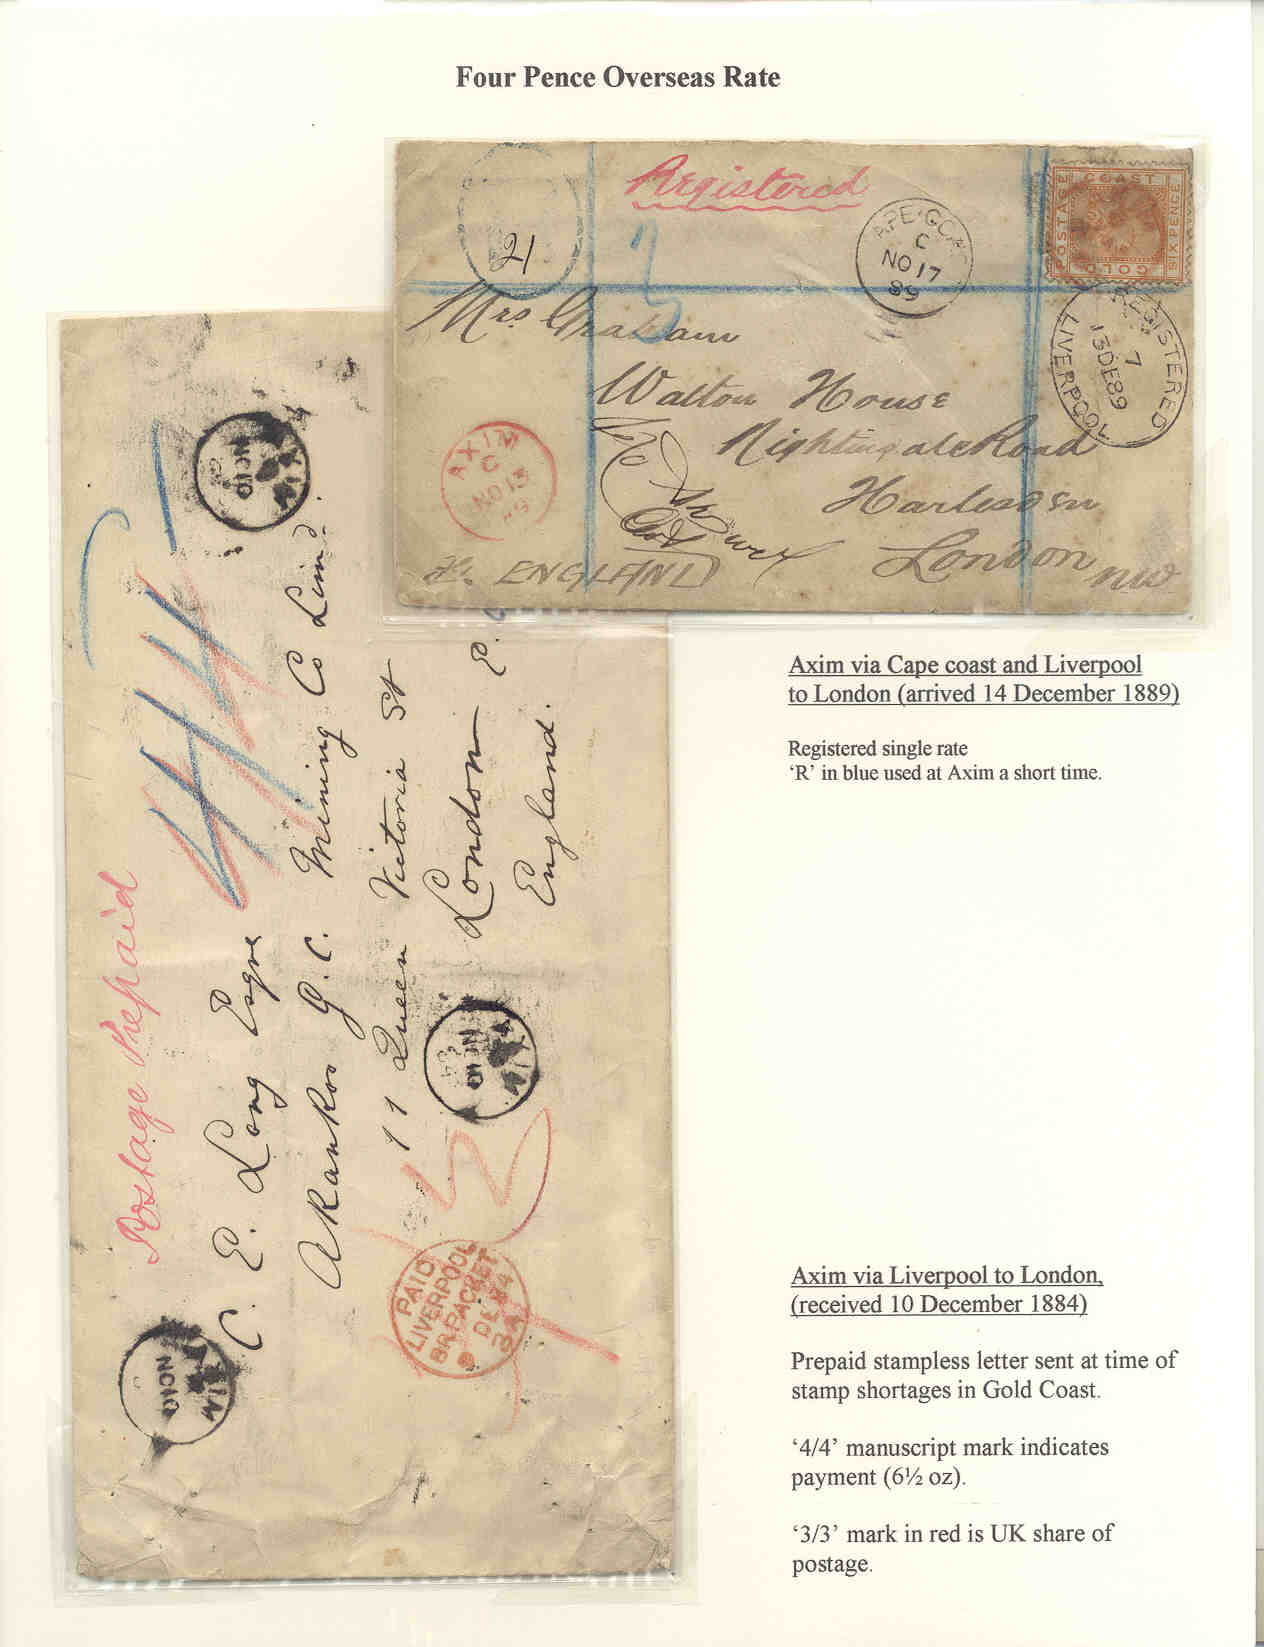 Four Pence Overseas Rate
Registered
21
APE COA
C
NO 17
89
POSTAGE
COAST
SIX PENCE
GOLD
Mrs Graham
Walton House
Nightingale Road
Harlesden
London
N.W.
ENGLAND
REGISTERED
7
13 DE 89
LIVERPOOL
AXIM
C
NO 13
89
Axim via Cape coast and Liverpool
to London (arrived 14 December 1889)
Registered single rate
‘R’ in blue used at Axim a short time.
Postage Prepaid
4/4
C. E. Long Esqre
Akankoo G. C. Mining Co Limd.
11 Queen Victoria St
London E.
England.
AXIM
NO 10
AXIM
NO 10
AXIM
NO 10
PAID
LIVERPOOL
BR. PACKET
DE
84
Axim via Liverpool to London,
(received 10 December 1884)
Prepaid stampless letter sent at time of
stamp shortages in Gold Coast.
‘4/4’ manuscript mark indicates
payment (6½ oz).
‘3/3’ mark in red is UK share of
postage.